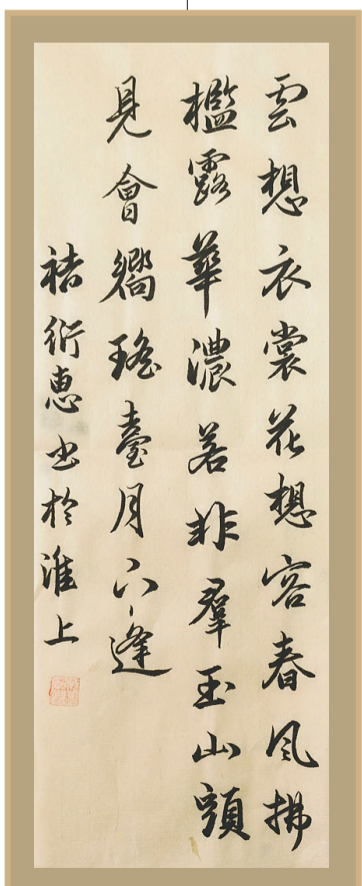 雲想衣裳花想容春風拂
檻露華濃若非羣玉山頭
見會嚮瑤臺月下逢
褚衍惠书於淮上